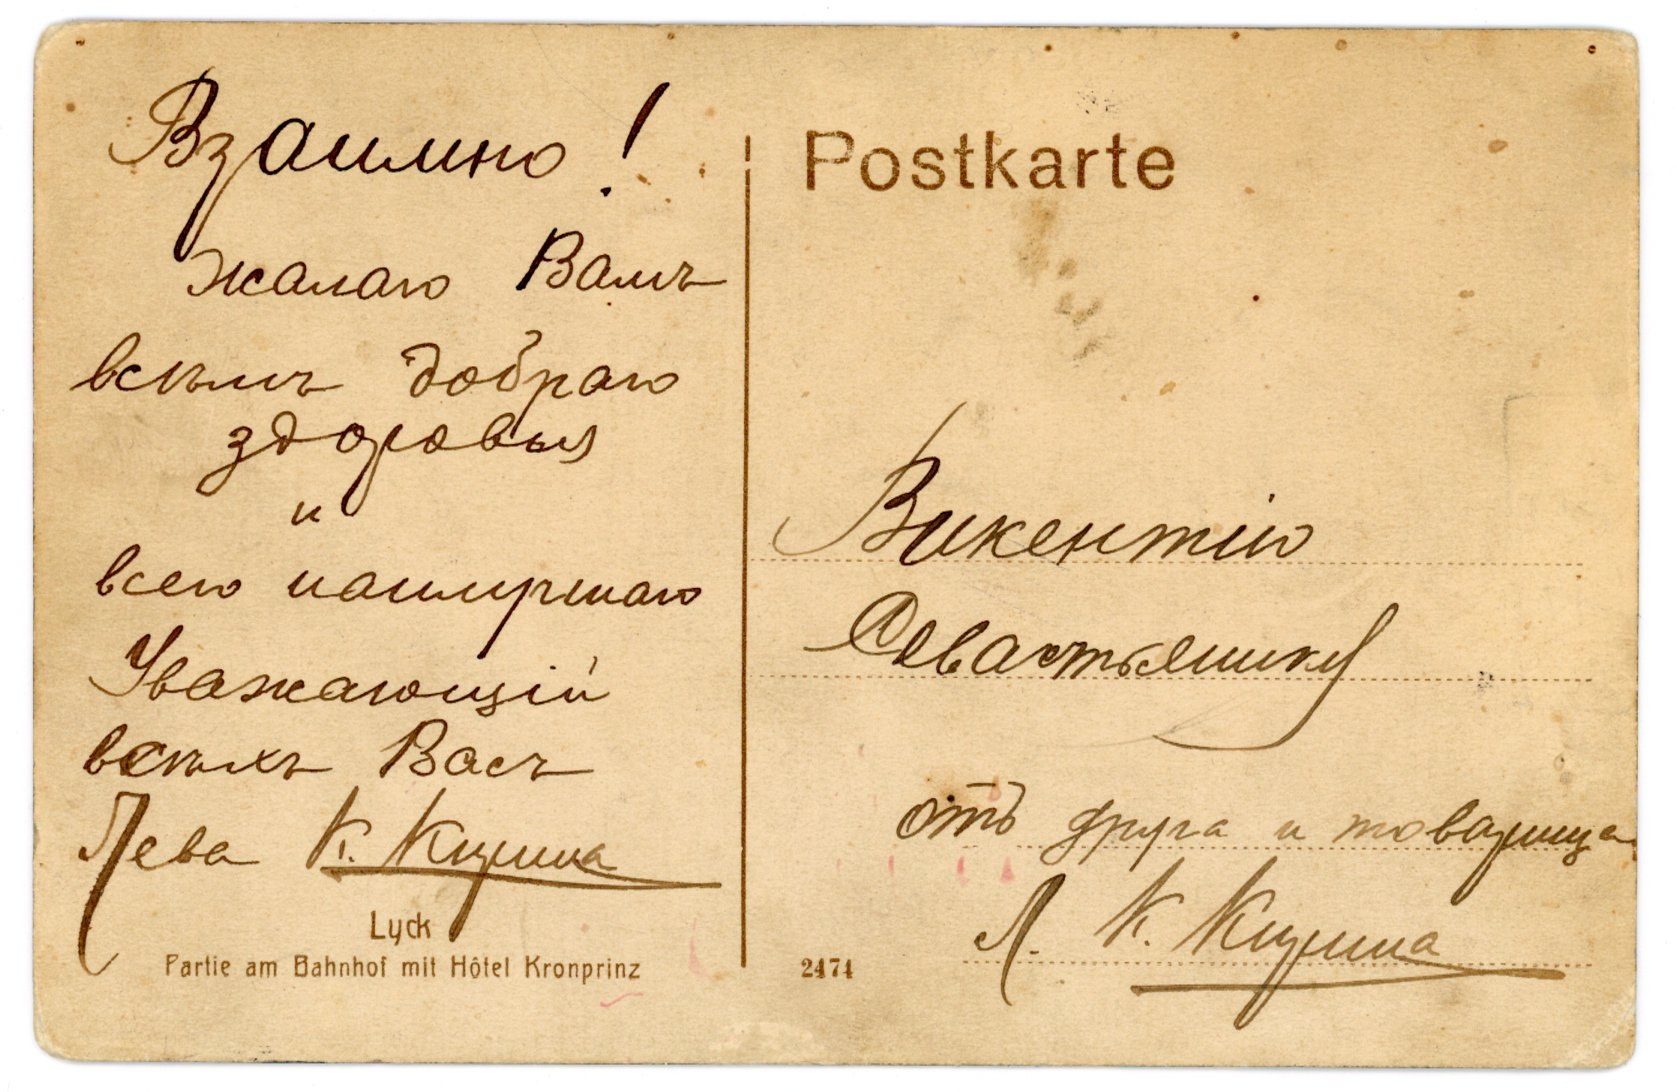 Взаимно!
Жалаю Вамъ
всѣмъ добраго
здоровья
и
всего наилучшаго
Уважающій
всѣхъ Васъ
Лева К.
Lyck
Partie am Bahnhof mit Hôtel Kronprinz
Postkarte
Викентію
отъ друга и товарища
Л. К.
2474